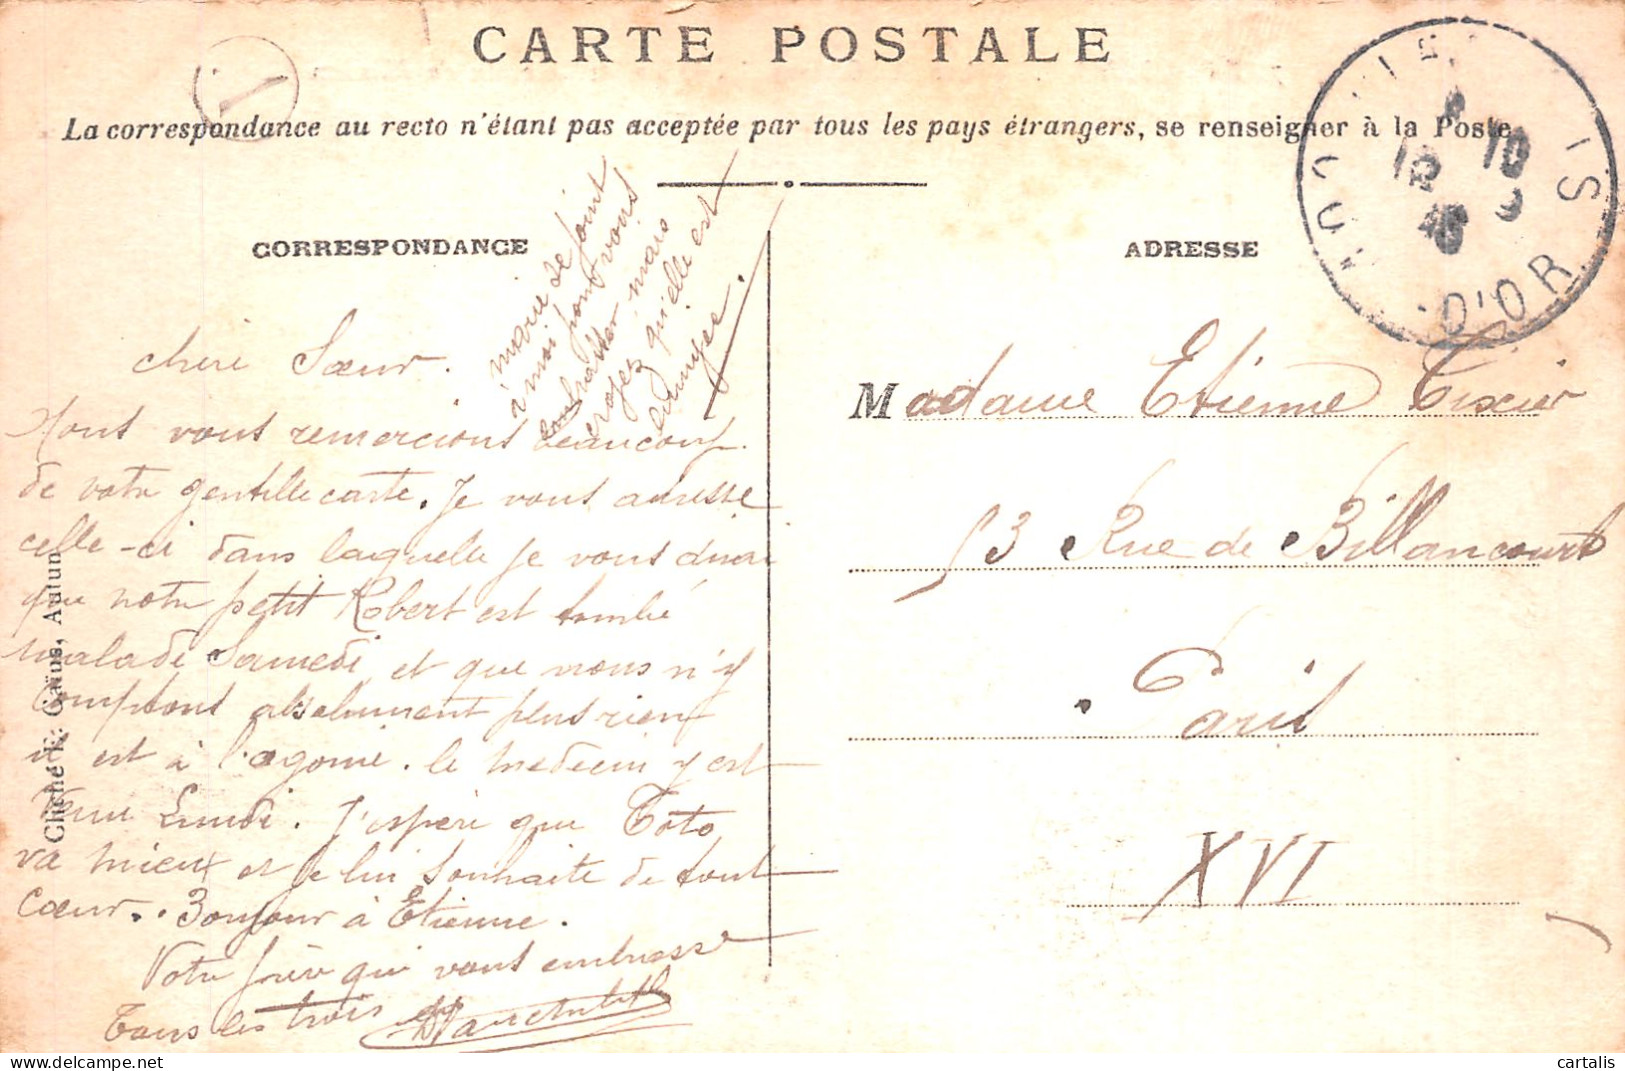 CARTE POSTALE
La correspondance au recto n'étant pas acceptée par tous les pays étrangers, se renseigner à la Poste
CORRESPONDANCE
ADRESSE
D'OR
12 10
Marie se joint
à moi pour vous
embrasser mais
croyez qu'elle est
ennuyée.
chère Sœur.
Nous vous remercions beaucoup
de votre gentille carte. Je vous adresse
celle-ci dans laquelle je vous dirai
que notre petit Robert est tombé
malade Samedi et que nous n'y
comptons absolument plus rien
il est à l'agonie. le medecin y est
venu Lundi. J'espère que Toto
va mieux et je lui souhaite de tout
cœur. Bonjour à Etienne.
Votre frère qui vous embrasse
Tous les trois
Madame Etienne Tixier
53 Rue de Billancourt
Paris
XVI
Cliché E. Gaïus, Autun
cartalis